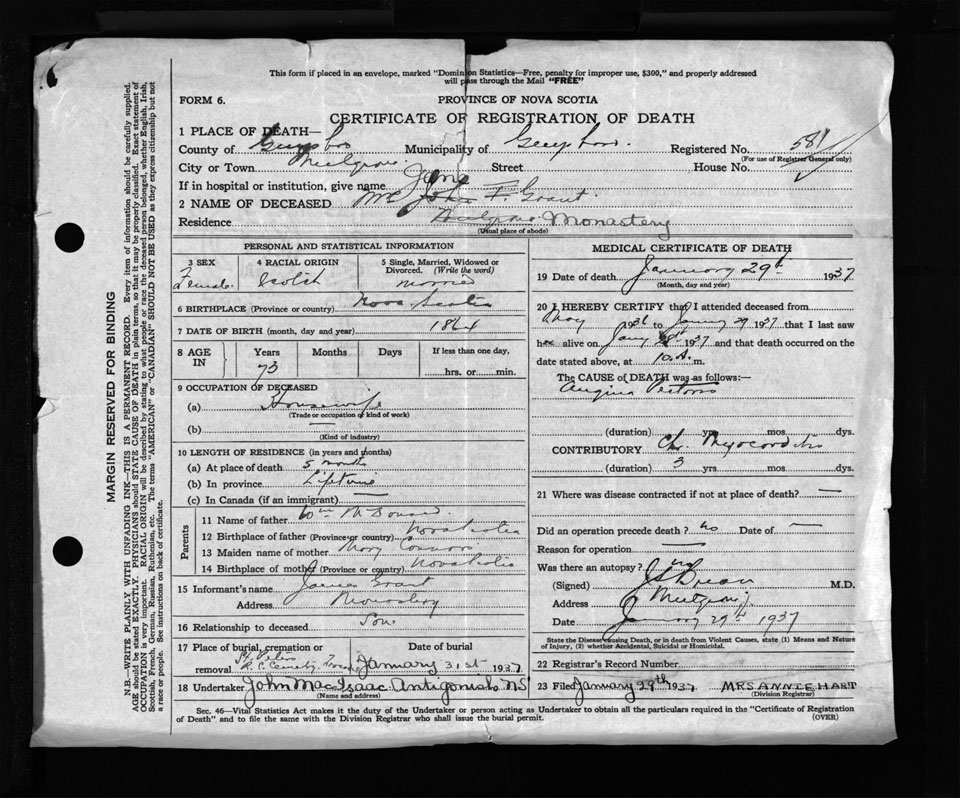 This form if placed in an envelope, marked "Dominion Statistics—Free, penalty for improper use, $300," and properly addressed
will pass through the Mail "FREE"
FORM 6.
PROVINCE OF NOVA SCOTIA
CERTIFICATE OF REGISTRATION OF DEATH
1 PLACE OF DEATH—
County of Guysboro Municipality of Guysboro. Registered No. 581
(For use of Registrar General only)
City or Town Mulgrave. Street House No.
If in hospital or institution, give name
Jane
2 NAME OF DECEASED Mrs John F. Grant.
Residence Mulgrave Monastery
(Usual place of abode)
PERSONAL AND STATISTICAL INFORMATION
3 SEX
Female.
4 RACIAL ORIGIN
Scotch
5 Single, Married, Widowed or Divorced. (Write the word)
Married
6 BIRTHPLACE (Province or country) Nova Scotia
7 DATE OF BIRTH (month, day and year) 1864
8 AGE IN Years Months Days If less than one day,
73 hrs. or min.
9 OCCUPATION OF DECEASED
(a) Housewife
(Trade or occupation of kind of work)
(b) —
(Kind of industry)
10 LENGTH OF RESIDENCE (in years and months)
(a) At place of death 5 months
(b) In province Lifetime
(c) In Canada (if an immigrant) —
Parents
11 Name of father Wm
12 Birthplace of father (Province or country) Nova Scotia
13 Maiden name of mother Mary Connors
14 Birthplace of mother (Province or country) Nova Scotia
15 Informant's name James Grant
Address Monastery
16 Relationship to deceased Son
17 Place of burial, cremation or removal St. Peters R. C. Cemetery
Date of burial
January 31st 1937
18 Undertaker John MacIsaac Antigonish NS
(Name and address)
MEDICAL CERTIFICATE OF DEATH
19 Date of death January 29th 1937
(Month, day and year)
20 I HEREBY CERTIFY that I attended deceased from
May 1936 to Jany 29 1937 that I last saw
her alive on Jany 1937 and that death occurred on the
date stated above, at 10 A. m.
The CAUSE of DEATH was as follows:—
Angina Pectoris
(duration) yrs mos. dys.
CONTRIBUTORY Chr. Myocarditis
(duration) 3 yrs mos dys.
21 Where was disease contracted if not at place of death? —
Did an operation precede death? no Date of —
Reason for operation —
Was there an autopsy? no
(Signed) M.D.
Address Mulgrave
Date January 29th 1937
State the Disease causing Death, or in death from Violent Causes, state (1) Means and Nature
of Injury, (2) whether Accidental, Suicidal or Homicidal.
22 Registrar's Record Number
23 Filed January 29th 1937. MRS ANNIE HART
(Division Registrar)
Sec. 46—Vital Statistics Act makes it the duty of the Undertaker or person acting as Undertaker to obtain all the particulars required in the "Certificate of Registration
of Death" and to file the same with the Division Registrar who shall issue the burial permit.
(OVER)
MARGIN RESERVED FOR BINDING
N.B.—WRITE PLAINLY WITH UNFADING INK—THIS IS A PERMANENT RECORD. Every item of information should be carefully supplied.
AGE should be stated EXACTLY. PHYSICIANS should STATE CAUSE OF DEATH in plain terms, so that it may be properly classified. Exact statement of
OCCUPATION is very important. RACIAL ORIGIN will be described by stating to what people or race the deceased person belonged, whether English, Irish,
Scottish, French, German, Russian, Ruthenian, etc. The terms "AMERICAN" or "CANADIAN" SHOULD NOT BE USED as they express citizenship but not
a race or people. See instructions on back of certificate.